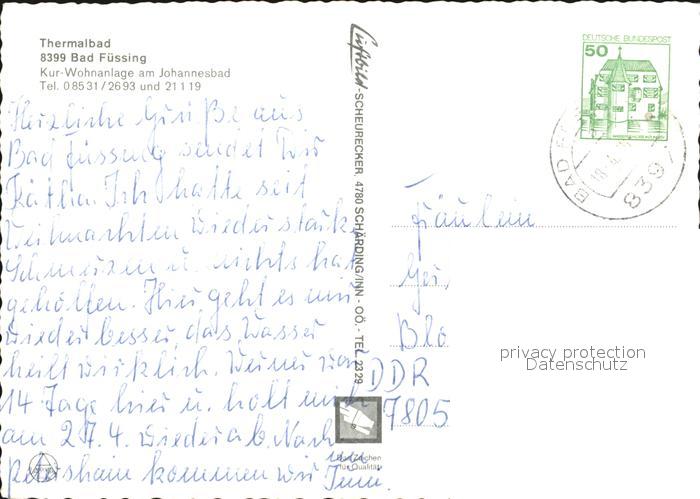 Thermalbad
8399 Bad Füssing
Kur-Wohnanlage am Johannesbad
Tel. 08531/2693 und 21119
Herzliche Grüße aus
Bad Füssung sendet Dir
Käthe. Ich hatte seit
Weihnachten wieder starke
Schmerzen u. nichts hat
geholfen. Hier geht es mir
wieder besser, das Wasser
heilt wirklich. Werner war
14 Tage hier u. holt mich
am 27.4. wieder ab. Nach
kommen wir
im Juni.
Luftbild-SCHEURECKER, 4780 SCHÄRDING/INN - OÖ. - TEL. 2329
Das Zeichen
für Qualität
DEUTSCHE BUNDESPOST
50
BAD
8397
Fräulein
DDR
7805
privacy protection
Datenschutz